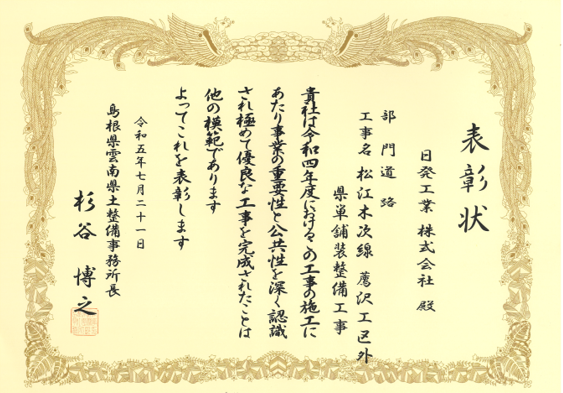 表彰状
日発工業 株式会社 殿
部門 道路
工事名 松江木次線 薦沢工区外
県単舗装整備工事
貴社は令和四年度における々の工事の施工に
あたり事業の重要性と公共性を深く認識
され極めて優良な工事を完成されたことは
他の模範であります
よってこれを表彰します
令和五年七月二十一日
島根県雲南県土整備事務所長
杉谷 博之